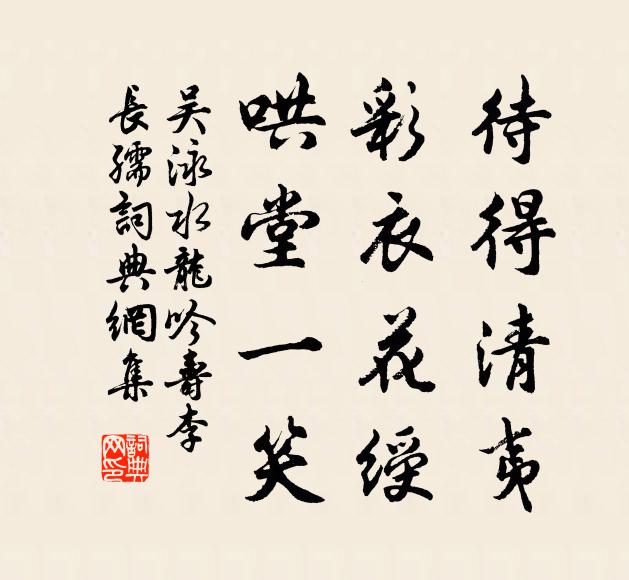 待得清夷
彩衣花綬
哄堂一笑
吳泳水龍吟壽李
長孺詞典網集
詞典網印